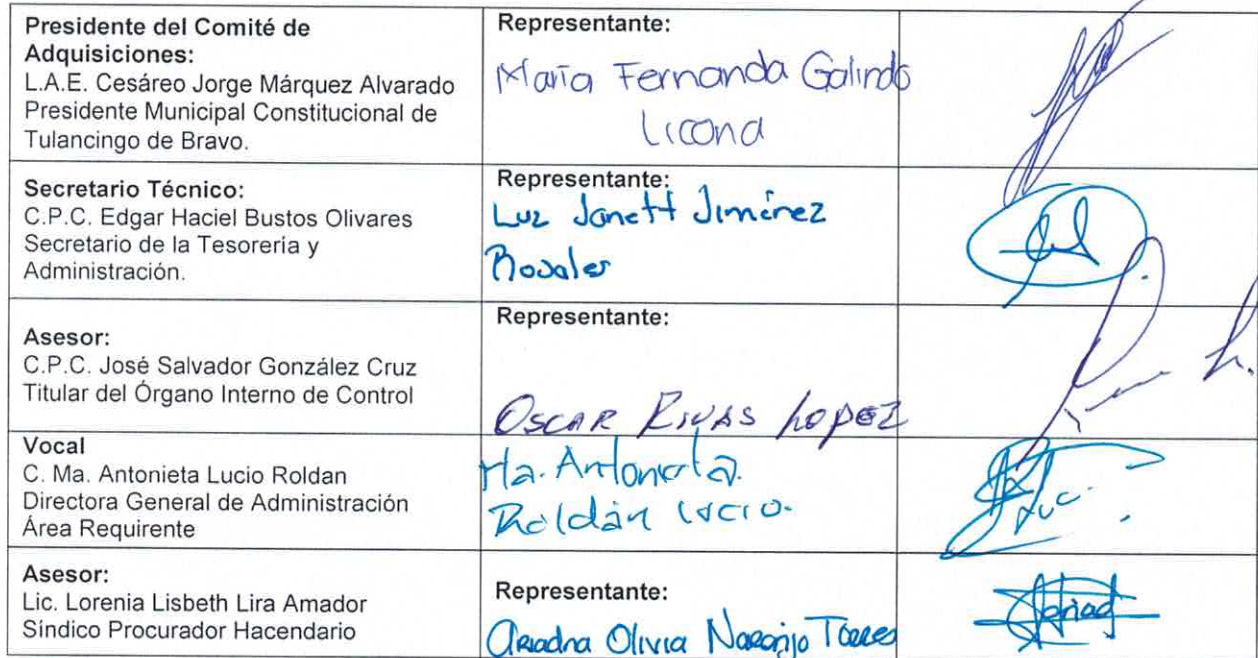 Presidente del Comité de
Adquisiciones:
L.A.E. Cesáreo Jorge Márquez Alvarado
Presidente Municipal Constitucional de
Tulancingo de Bravo.
Representante:
María Fernanda Galindo
Licona
Secretario Técnico:
C.P.C. Edgar Haciel Bustos Olivares
Secretario de la Tesorería y
Administración.
Representante:
Luz Janett Jiménez
Rosales
Asesor:
C.P.C. José Salvador González Cruz
Titular del Órgano Interno de Control
Representante:
OSCAR RIVAS LOPEZ
Vocal
C. Ma. Antonieta Lucio Roldan
Directora General de Administración
Área Requirente
Ma. Antonieta
Roldán Lucio.
Asesor:
Lic. Lorenia Lisbeth Lira Amador
Síndico Procurador Hacendario
Representante:
Ariadna Olivia Naranjo Torres